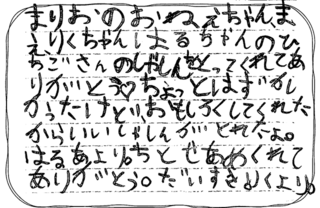 まりおのおねえちゃんま
えりくちゃんしょるちゃんのひ
ちごさんのしゃしんをとってくれてあ
りがとう♡ちょっとはずかし
かったけどおもしろくしてくれた
からいいしゃしんがとれたよ。
はるあよりちとせあめくれて
ありがとう。だいすきりくより。